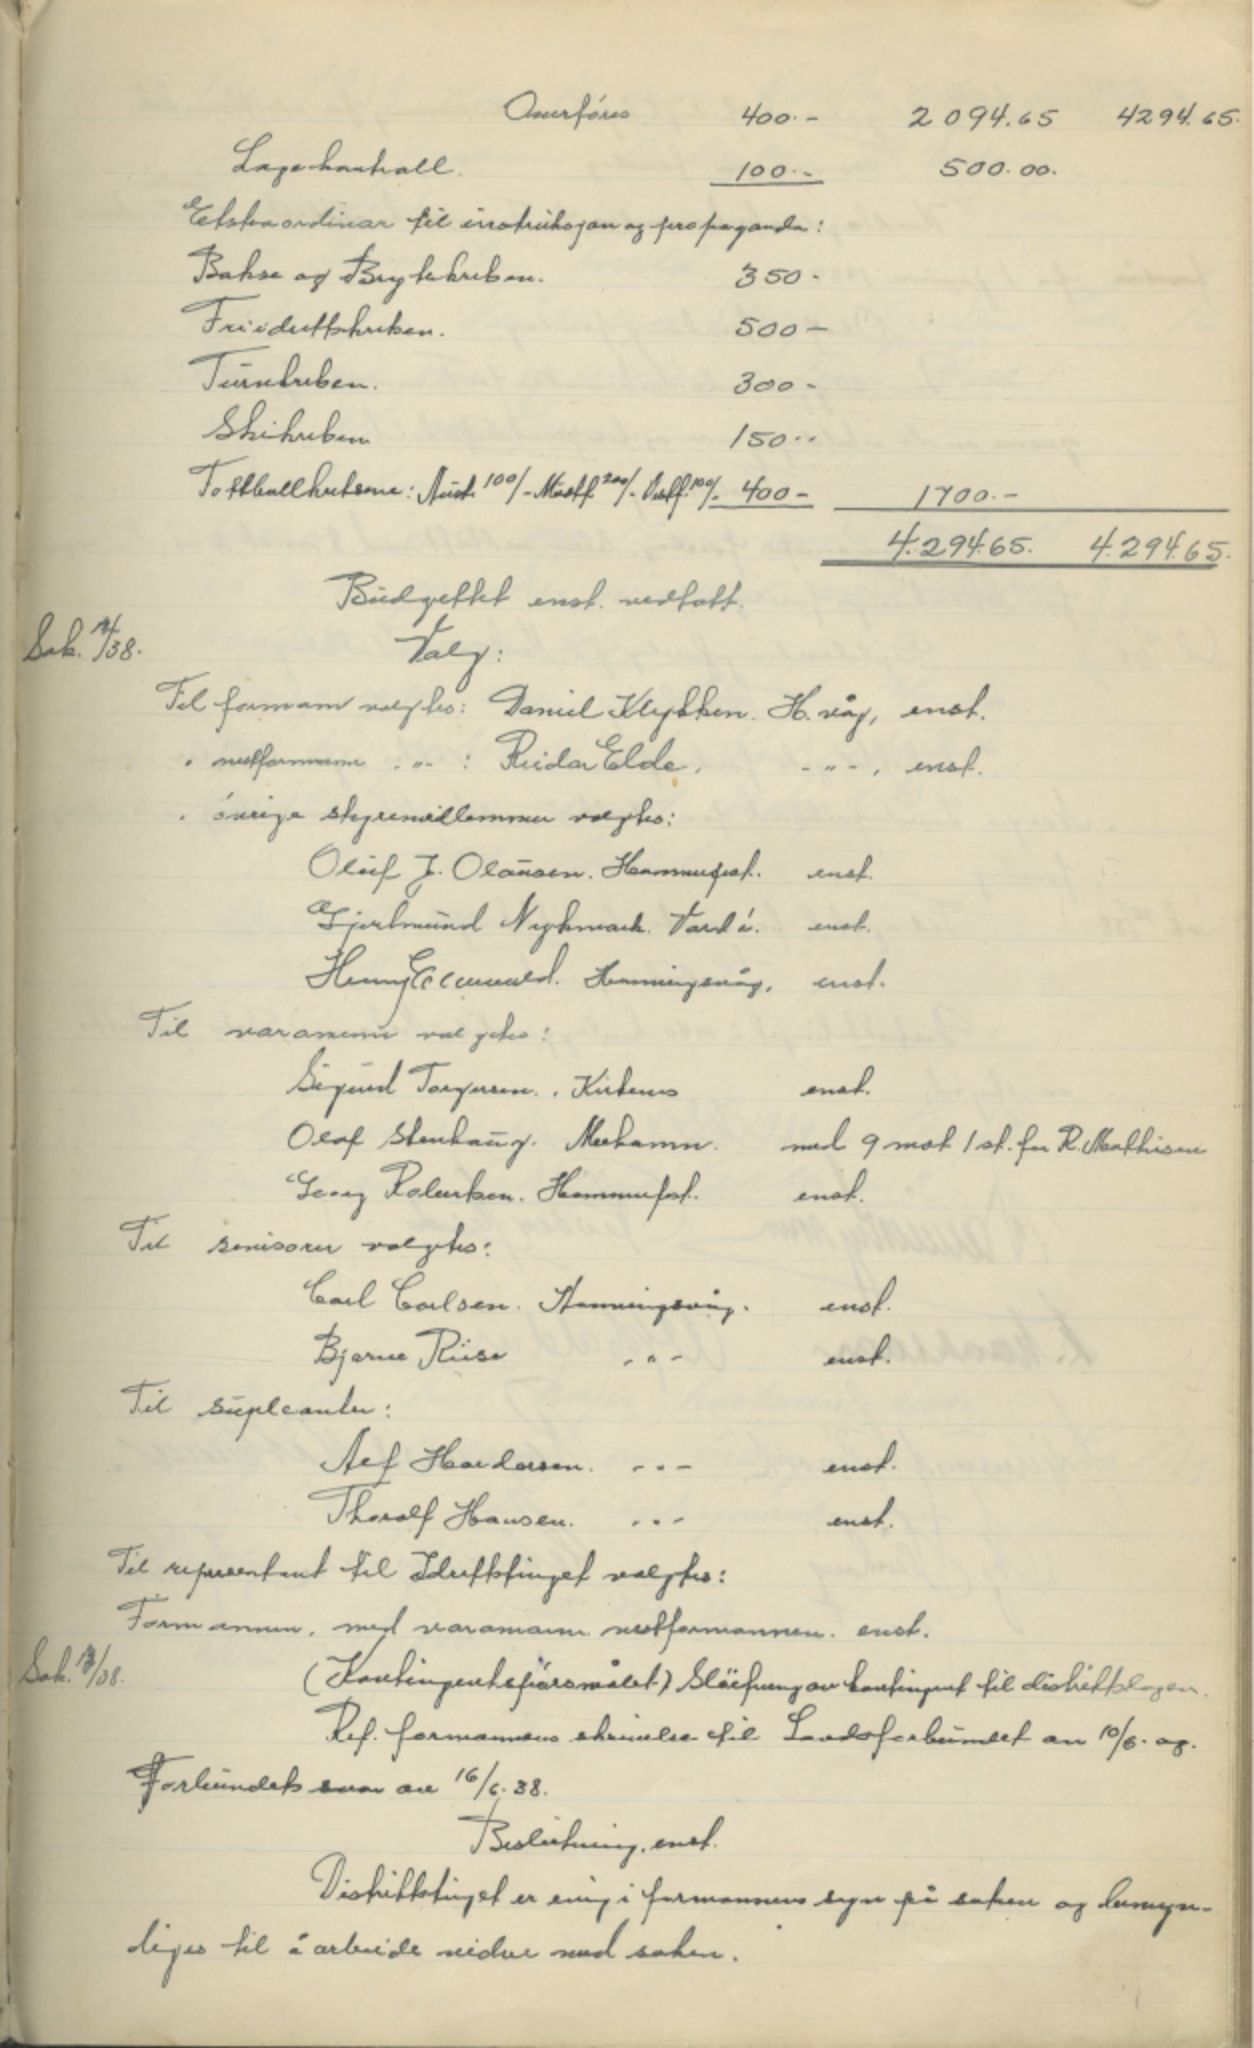 Overføres 400.- 2094.65 4294.65.
Lagerkontroll. 100.- 500.00.
Ekstraordinær til instruksjon og propaganda:
Bokse og Brytekretsen. 350-
Friidrettskretsen. 500-
Turnkretsen. 300-
Skikretsen 150..
Fotballkretsene: Austf. 100/- Midtf. 200/- Vestf. 100/- 400- 1700.-
4.294.65. 4.294.65.
Budgettet enst. vedtatt.
Sak. /38. Valg:
Til formann valgtes: Daniel Klykken. H.våg, enst.
" nestformann -"- : Reidar Elde, -"-, enst.
" øvrige styremedlemmer valgtes:
Oluf J. Olaussen. Hammerfest. enst.
Gjertmund Nykmark. Vardø. enst.
Henry Honningsvåg, enst.
Til varamenn valgtes:
Sigurd Torgersen., Kirkenes enst.
Olaf Stenhaug. Mehamn. med 9 mot 1 st. for R. Mathisen
Georg Robertsen. Hammerfest. enst.
Til revisorer valgtes:
Carl Carlsen. Honningsvåg. enst.
Bjarne Riise -"- enst.
Til supleanter:
Alf Haldorsen. -"- enst.
Thoralf Hansen. -"- enst.
Til representant til Idrettstinget valgtes:
Formannen, med varamann nestformannen. enst.
Sak. /38. (Kontingentspørsmålet) Sløifning av kontingent til distriktslagen.
Ref. formannens skrivelse til Landsforbundet av 10/6. og
Forbundets svar av 16/6.38.
Beslutning, enst.
Distriktstinget er enig i formannens syn på saken og bemyn-
diges til å arbeide videre med saken.